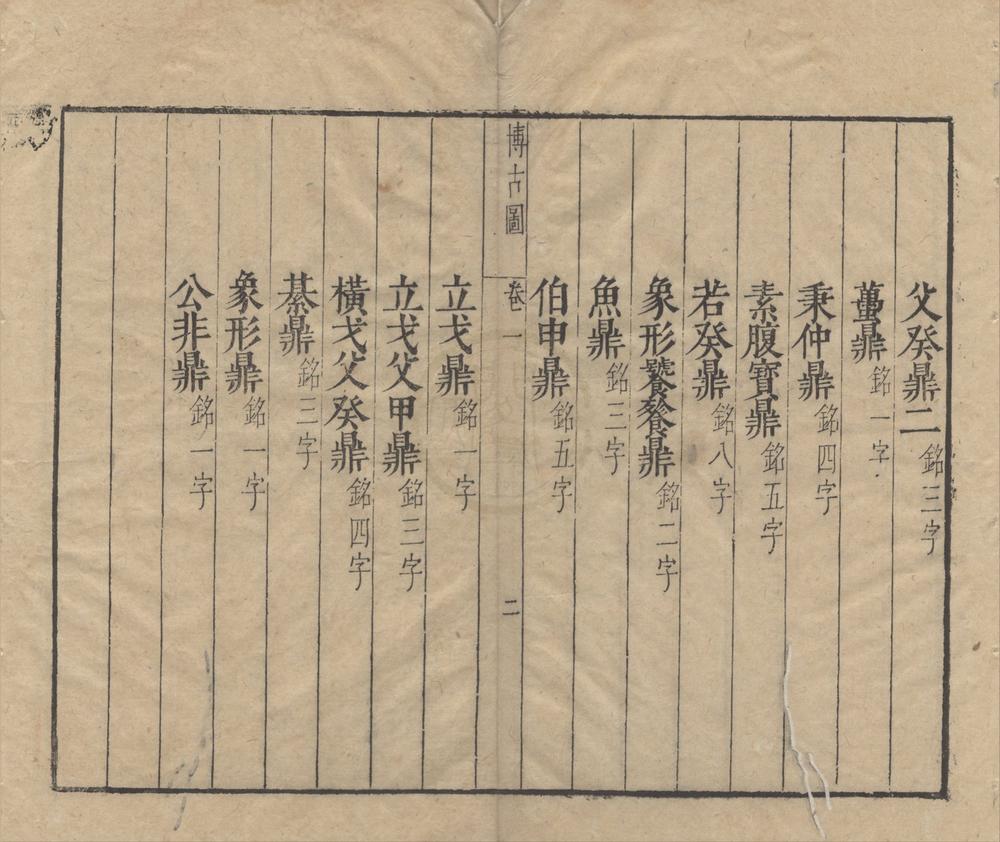 父癸鼎二銘三字
蠆鼎銘一字
秉仲鼎銘四字
素腹寶鼎銘五字
若癸鼎銘八字
象形饕餮鼎銘二字
魚鼎銘三字
伯申鼎銘五字
博古圖 卷一 二
立戈鼎銘一字
立戈父甲鼎銘三字
橫戈父癸鼎銘四字
綦鼎銘三字
象形鼎銘一字
公非鼎銘一字